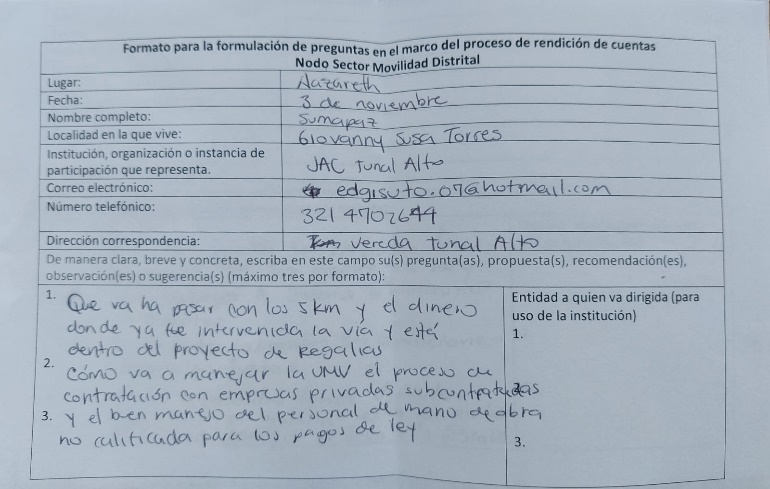 Formato para la formulación de preguntas en el marco del proceso de rendición de cuentas
Nodo Sector Movilidad Distrital
Lugar: Nazareth
Fecha: 3 de noviembre
Nombre completo: Sumapaz
Localidad en la que vive: Giovanny Susa Torres
Institución, organización o instancia de
participación que representa. JAC Tunal Alto
Correo electrónico: edgisuto.07@hotmail.com
Número telefónico: 321 4702644
Dirección correspondencia: Vereda Tunal Alto
De manera clara, breve y concreta, escriba en este campo su(s) pregunta(as), propuesta(s), recomendación(es),
observación(es) o sugerencia(s) (máximo tres por formato):
1. Que va ha pasar con los 5km y el dinero
donde ya fue intervenida la vía y está
dentro del proyecto de Regalias
2. Cómo va a manejar la UMV el proceso de
contratación con empresas privadas subcontratadas
3. y el buen manejo del personal de mano de obra
no calificada para los pagos de ley
Entidad a quien va dirigida (para
uso de la institución)
1.
2.
3.